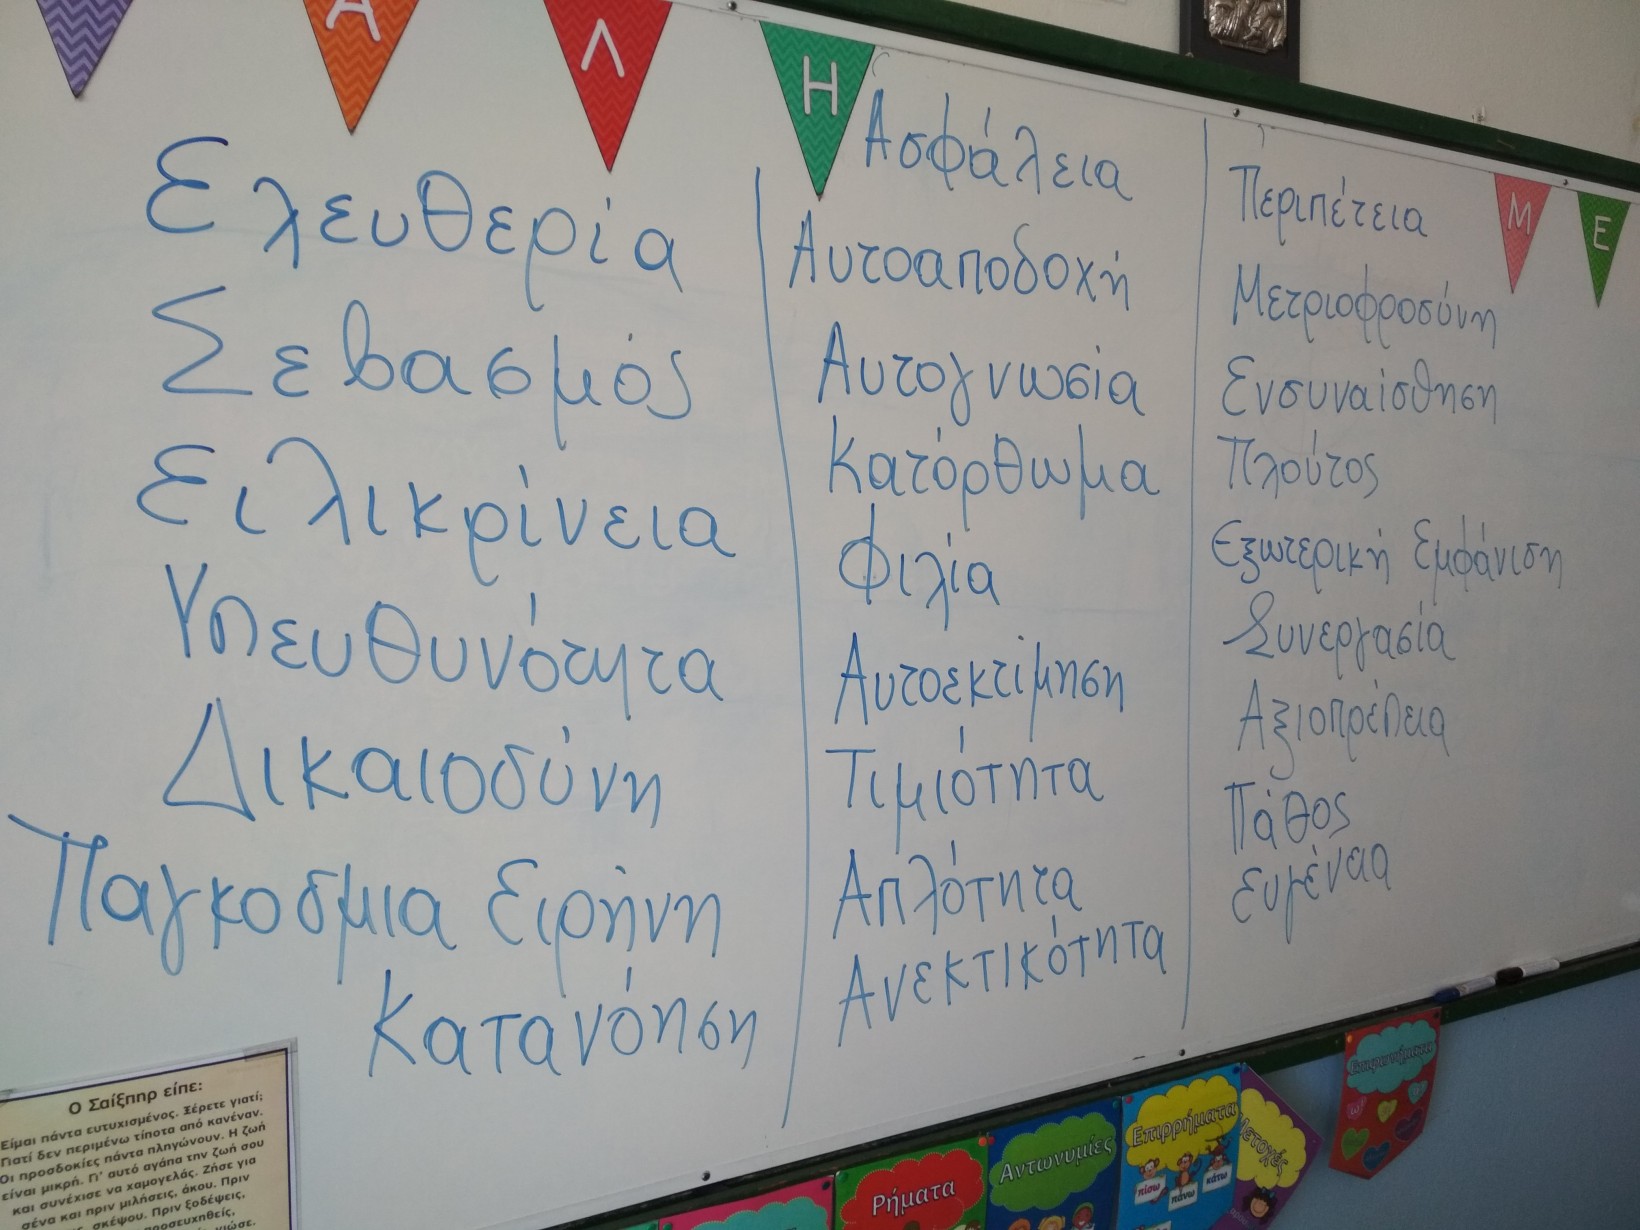 Α Λ Η
Μ Ε
Ελευθερία
Σεβασμός
Ειλικρίνεια
Υπευθυνότητα
Δικαιοσύνη
Παγκοσμια Ειρήνη
Κατανόηση
Ασφάλεια
Αυτοαποδοχή
Αυτογνωσία
Κατόρθωμα
Φιλία
Αυτοεκτίμηση
Τιμιότητα
Απλότητα
Ανεκτικότητα
Περιπέτεια
Μετριοφροσύνη
Ενσυναίσθηση
Πλούτος
Εξωτερική Εμφάνιση
Συνεργασία
Αξιοπρέπεια
Πάθος
Ευγένεια
Ο Σαίξπηρ είπε:
Είμαι πάντα ευτυχισμένος. Ξέρετε γιατί;
Γιατί δεν περιμένω τίποτα από κανέναν.
Οι προσδοκίες πάντα πληγώνουν. Η ζωή
είναι μικρή. Γι' αυτό αγάπα την ζωή σου
και συνέχισε να χαμογελάς. Ζήσε για
σένα και πριν μιλήσεις, άκου. Πριν
σκέψου. Πριν ξοδέψεις,
Ρήματα
Αντωνυμίες
Επιρρήματα
πίσω πάνω κάτω
Μετοχές
Επιφωνήματα